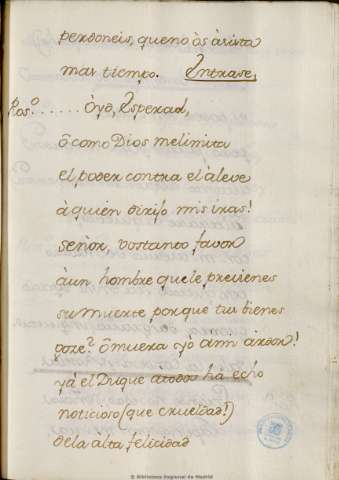 perdoneis, que no ôs àsista
mas tiempo. Entrase,
Ros.º ...... ôyd, Esperad,
ô como Dios melimita
el poder contra el àleve
à quien dirijo mis iras!
señor, vos tanto favor
àun hombre quele previenes
su muerte, porque tus bienes
goze? ô muera yo àmi àrdor!
yà el Duque à todos há echo
noticioso (que crueldad!)
dela álta felicidad
© Biblioteca Regional de Madrid